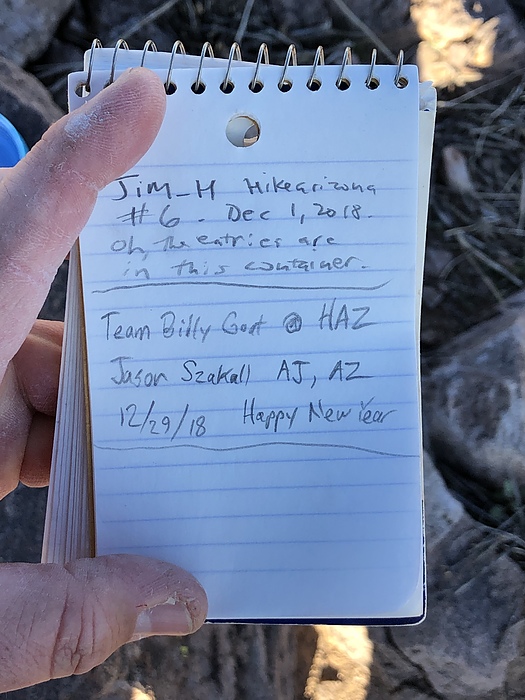 Jim_H Hikearizona
#6. Dec 1, 2018.
Oh, the entries are
in this container.
Team Billy Goat @ HAZ
Jason Szakall AJ, AZ
12/29/18 Happy New Year